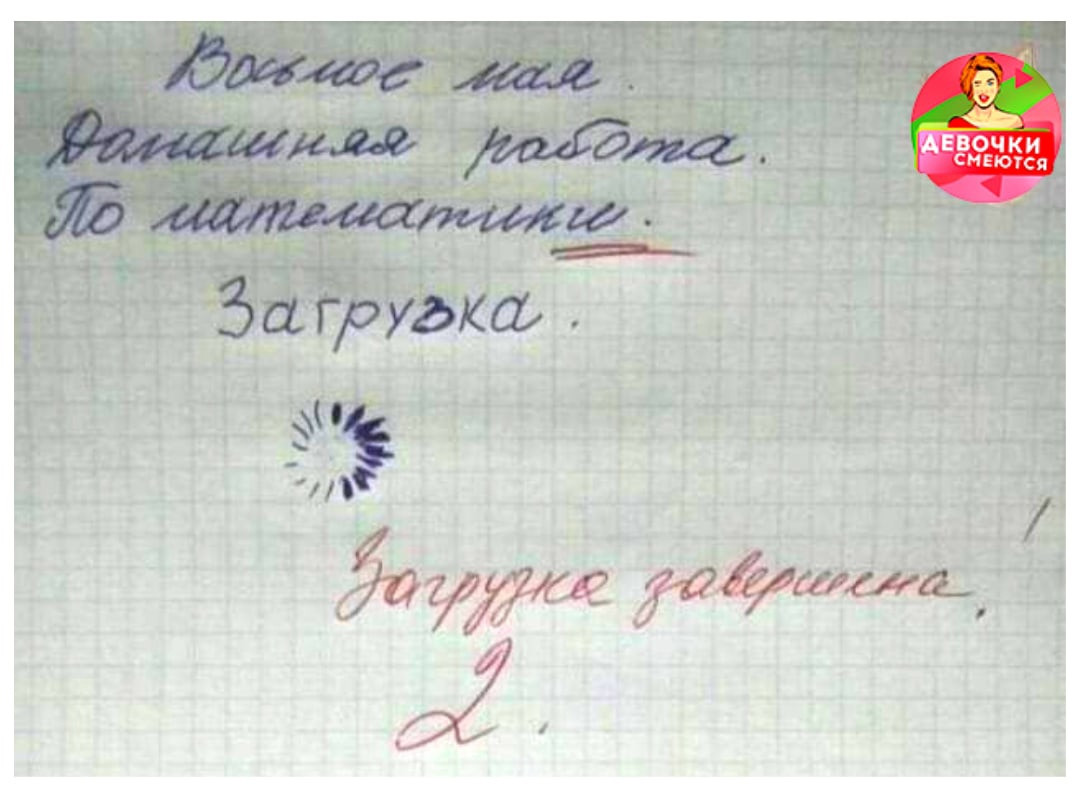 Восьмое мая.
Домашняя работа.
По математики.
ДЕВОЧКИ
СМЕЮТСЯ
Загрузка.
Загрузка завершена.
2.